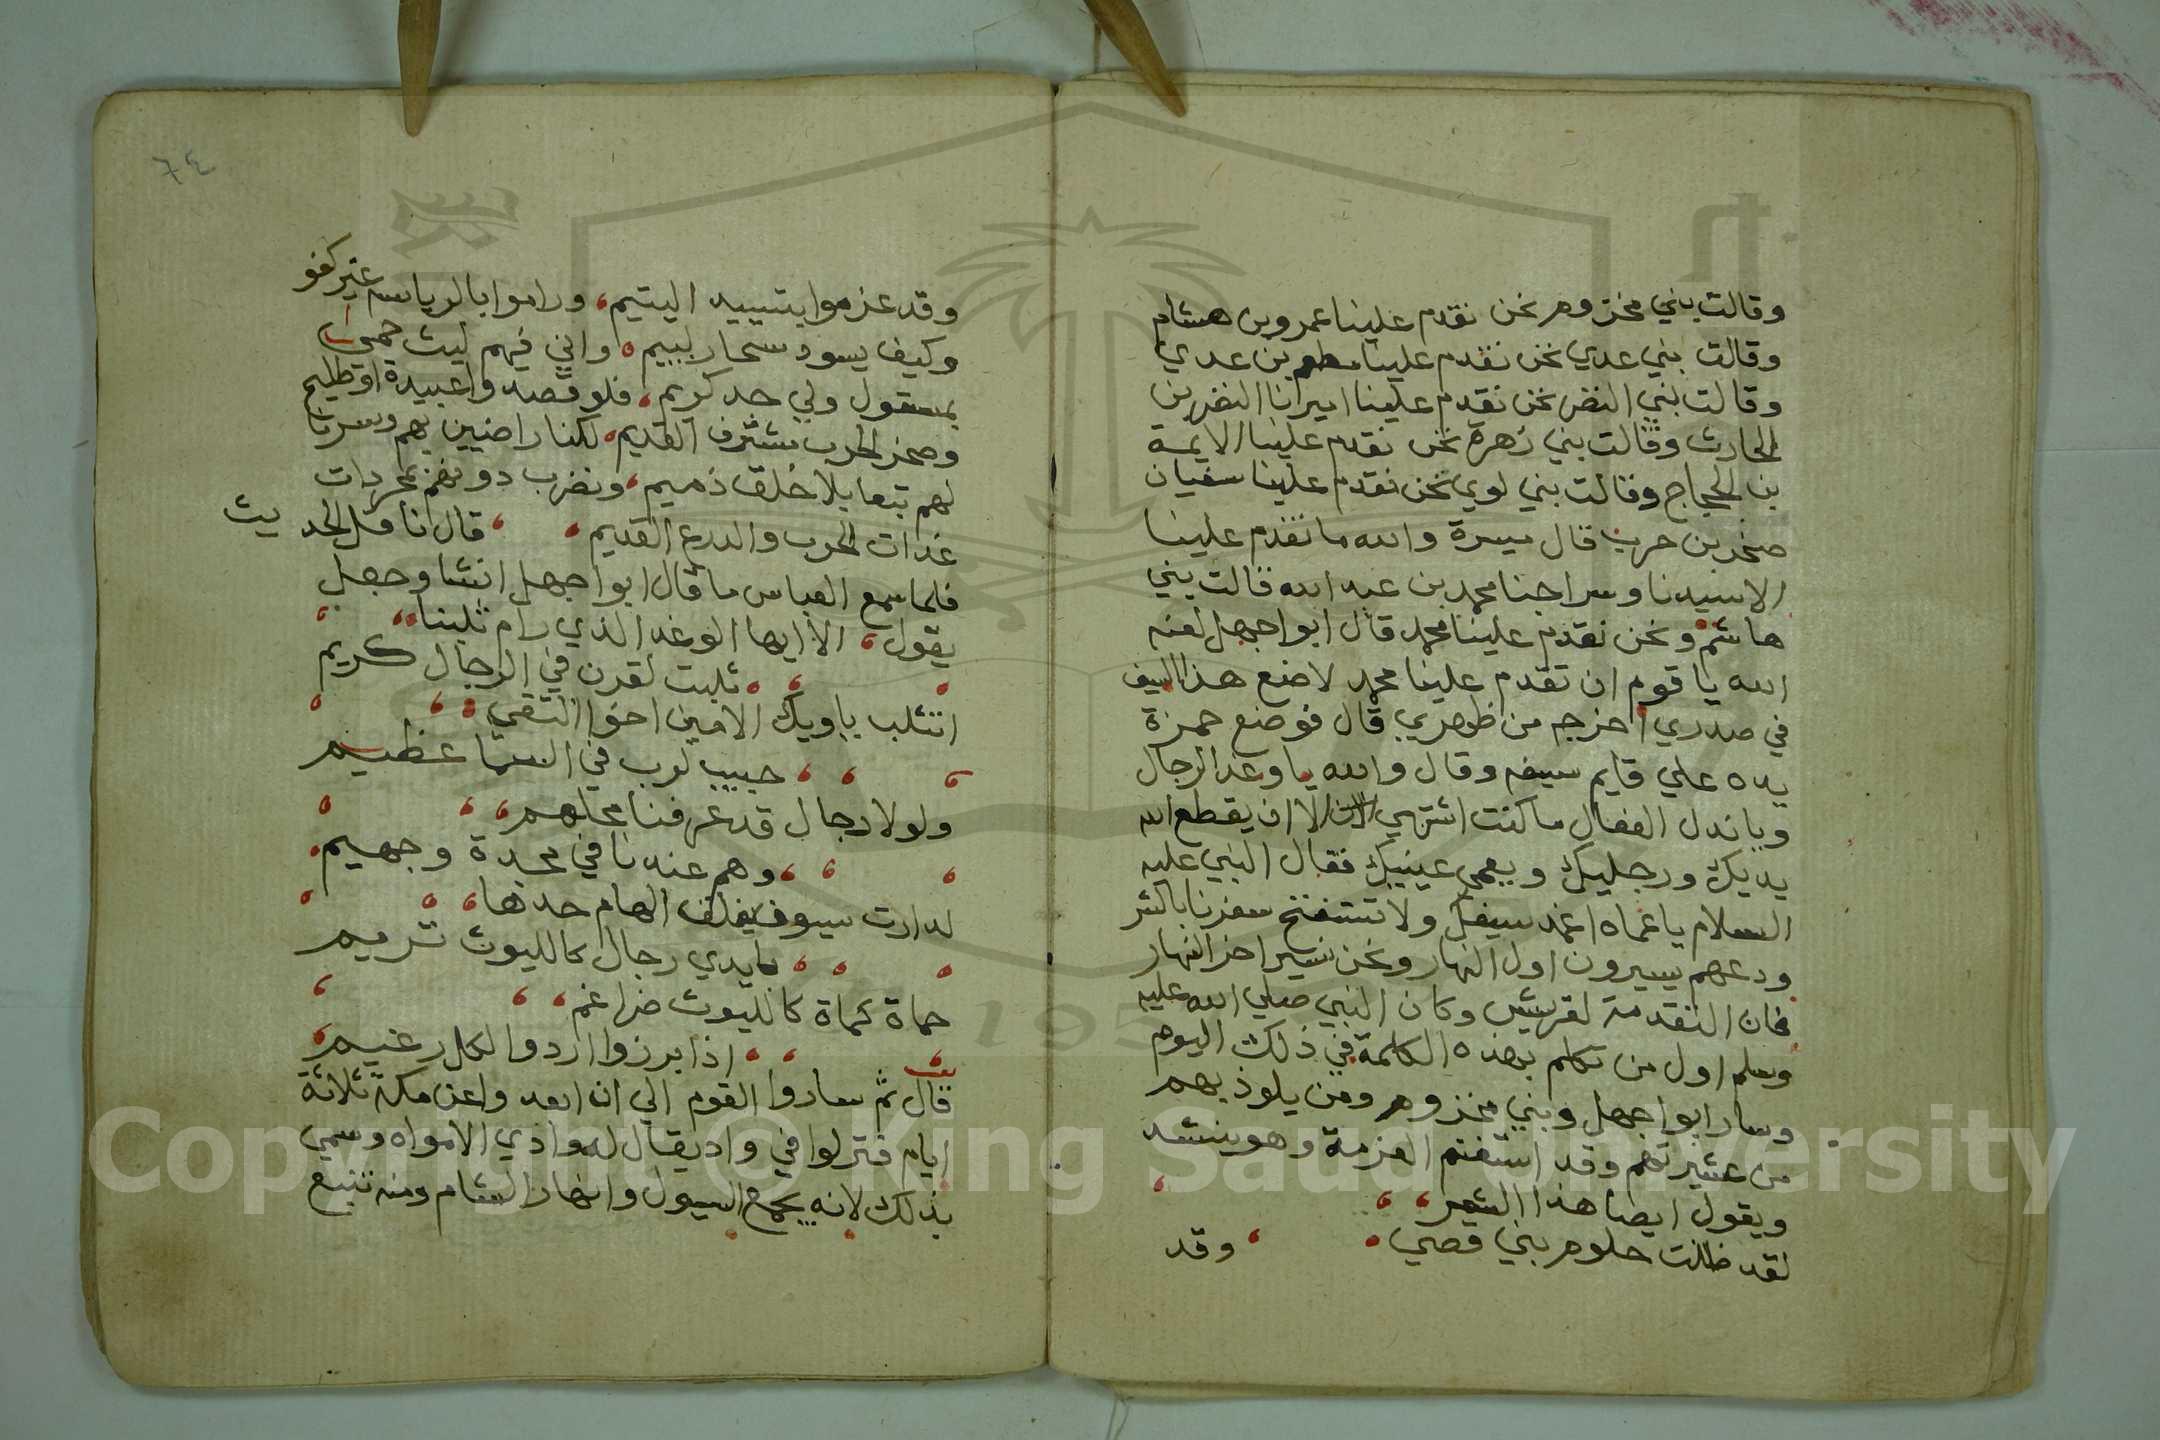 وقالت بني مخزوم نحن نقدم علينا عمرو بن هشام
وقالت بني عدي نحن نقدم علينا مطعم بن عدي
وقالت بني النضر نحن نقدم علينا اميرانا النضر بن
الحارث وقالت بني زهرة نحن نقدم علينا الايمة
بن الحجاج وقالت بني لوي نحن نقدم علينا سفيان
صخر بن حرب قال ميسرة والله ما نقدم علينا
الا سيدنا وسراجنا محمد بن عبد الله قالت بني
هاشم ونحن نقدم علينا محمد قال ابوا جهل لعنه
الله يا قوم ان تقدم علينا محمد لاضع هذا السيف
في صدري اخرجه من ظهري قال فوضع حمزة
يده علي قايم سيفه وقال والله يا وغد الرجال
ويا ندل الفعال ما كنت اشتهي الا ان يقطع الله
يديك ورجليك ويعمي عينيك فقال النبي عليه
السلام يا عماه اغمد سيفك ولا تستفتح سفرنا بالشر
ودعهم يسيرون اول النهار ونحن نسير اخر النهار
فحان التقدمة لقريش وكان النبي صلي الله عليه
وسلم اول من تكلم بهذه الكلمة في ذلك اليوم
وسار ابوا جهل وبني مخزوم ومن يلوذ بهم
من عشيرتهم وقد استغنم العزمة وهو ينشد
ويقول ايضا هذا الشعر
لقد ضلت حلوم بني قصي وقد
٦٤
وقد عزموا بتسييد اليتيم، وراموا بالرياسه غير كفو
وكيف يسود سحار لبيم، واني فيهم ليث حمي
بمصقول ولي جد كريم، فلو قصدوا عبيدة او ظليم
وصخر الحرب مشرف القديم، لكنا راضيين بهم وسرنا
لهم تبعا بلا خلف ذميم، ونضرب دونهم بمجردات
غدات الحرب والدرع القديم، قال ناقل الحديث
فلما سمع العباس ما قال ابوا جهل انشا وجعل
يقول، الا ايها الوغد الذي رام ثلبنا
ثلبت لقرن في الرجال كريم
اتثلب يا ويك الامين اخو التقي
حبيب لرب في السما عظيم
ولولا رجال قد عرفنا محلهم
وهم عندنا في مجدة وجهيم
لدارت سيوف يفلق الهام حدها
بايدي رجال كالليوث تريم
حماة كماة كالليوث ضراغم
اذا برزوا اردوا لكل زعيم
قال ثم ساروا القوم الي ان ابعدوا عن مكة ثلاثة
ايام فنزلوا في واد يقال له واذي الامواه وسمي
بذلك لانه يجمع السيول وانهار الشام ومنه تنبع